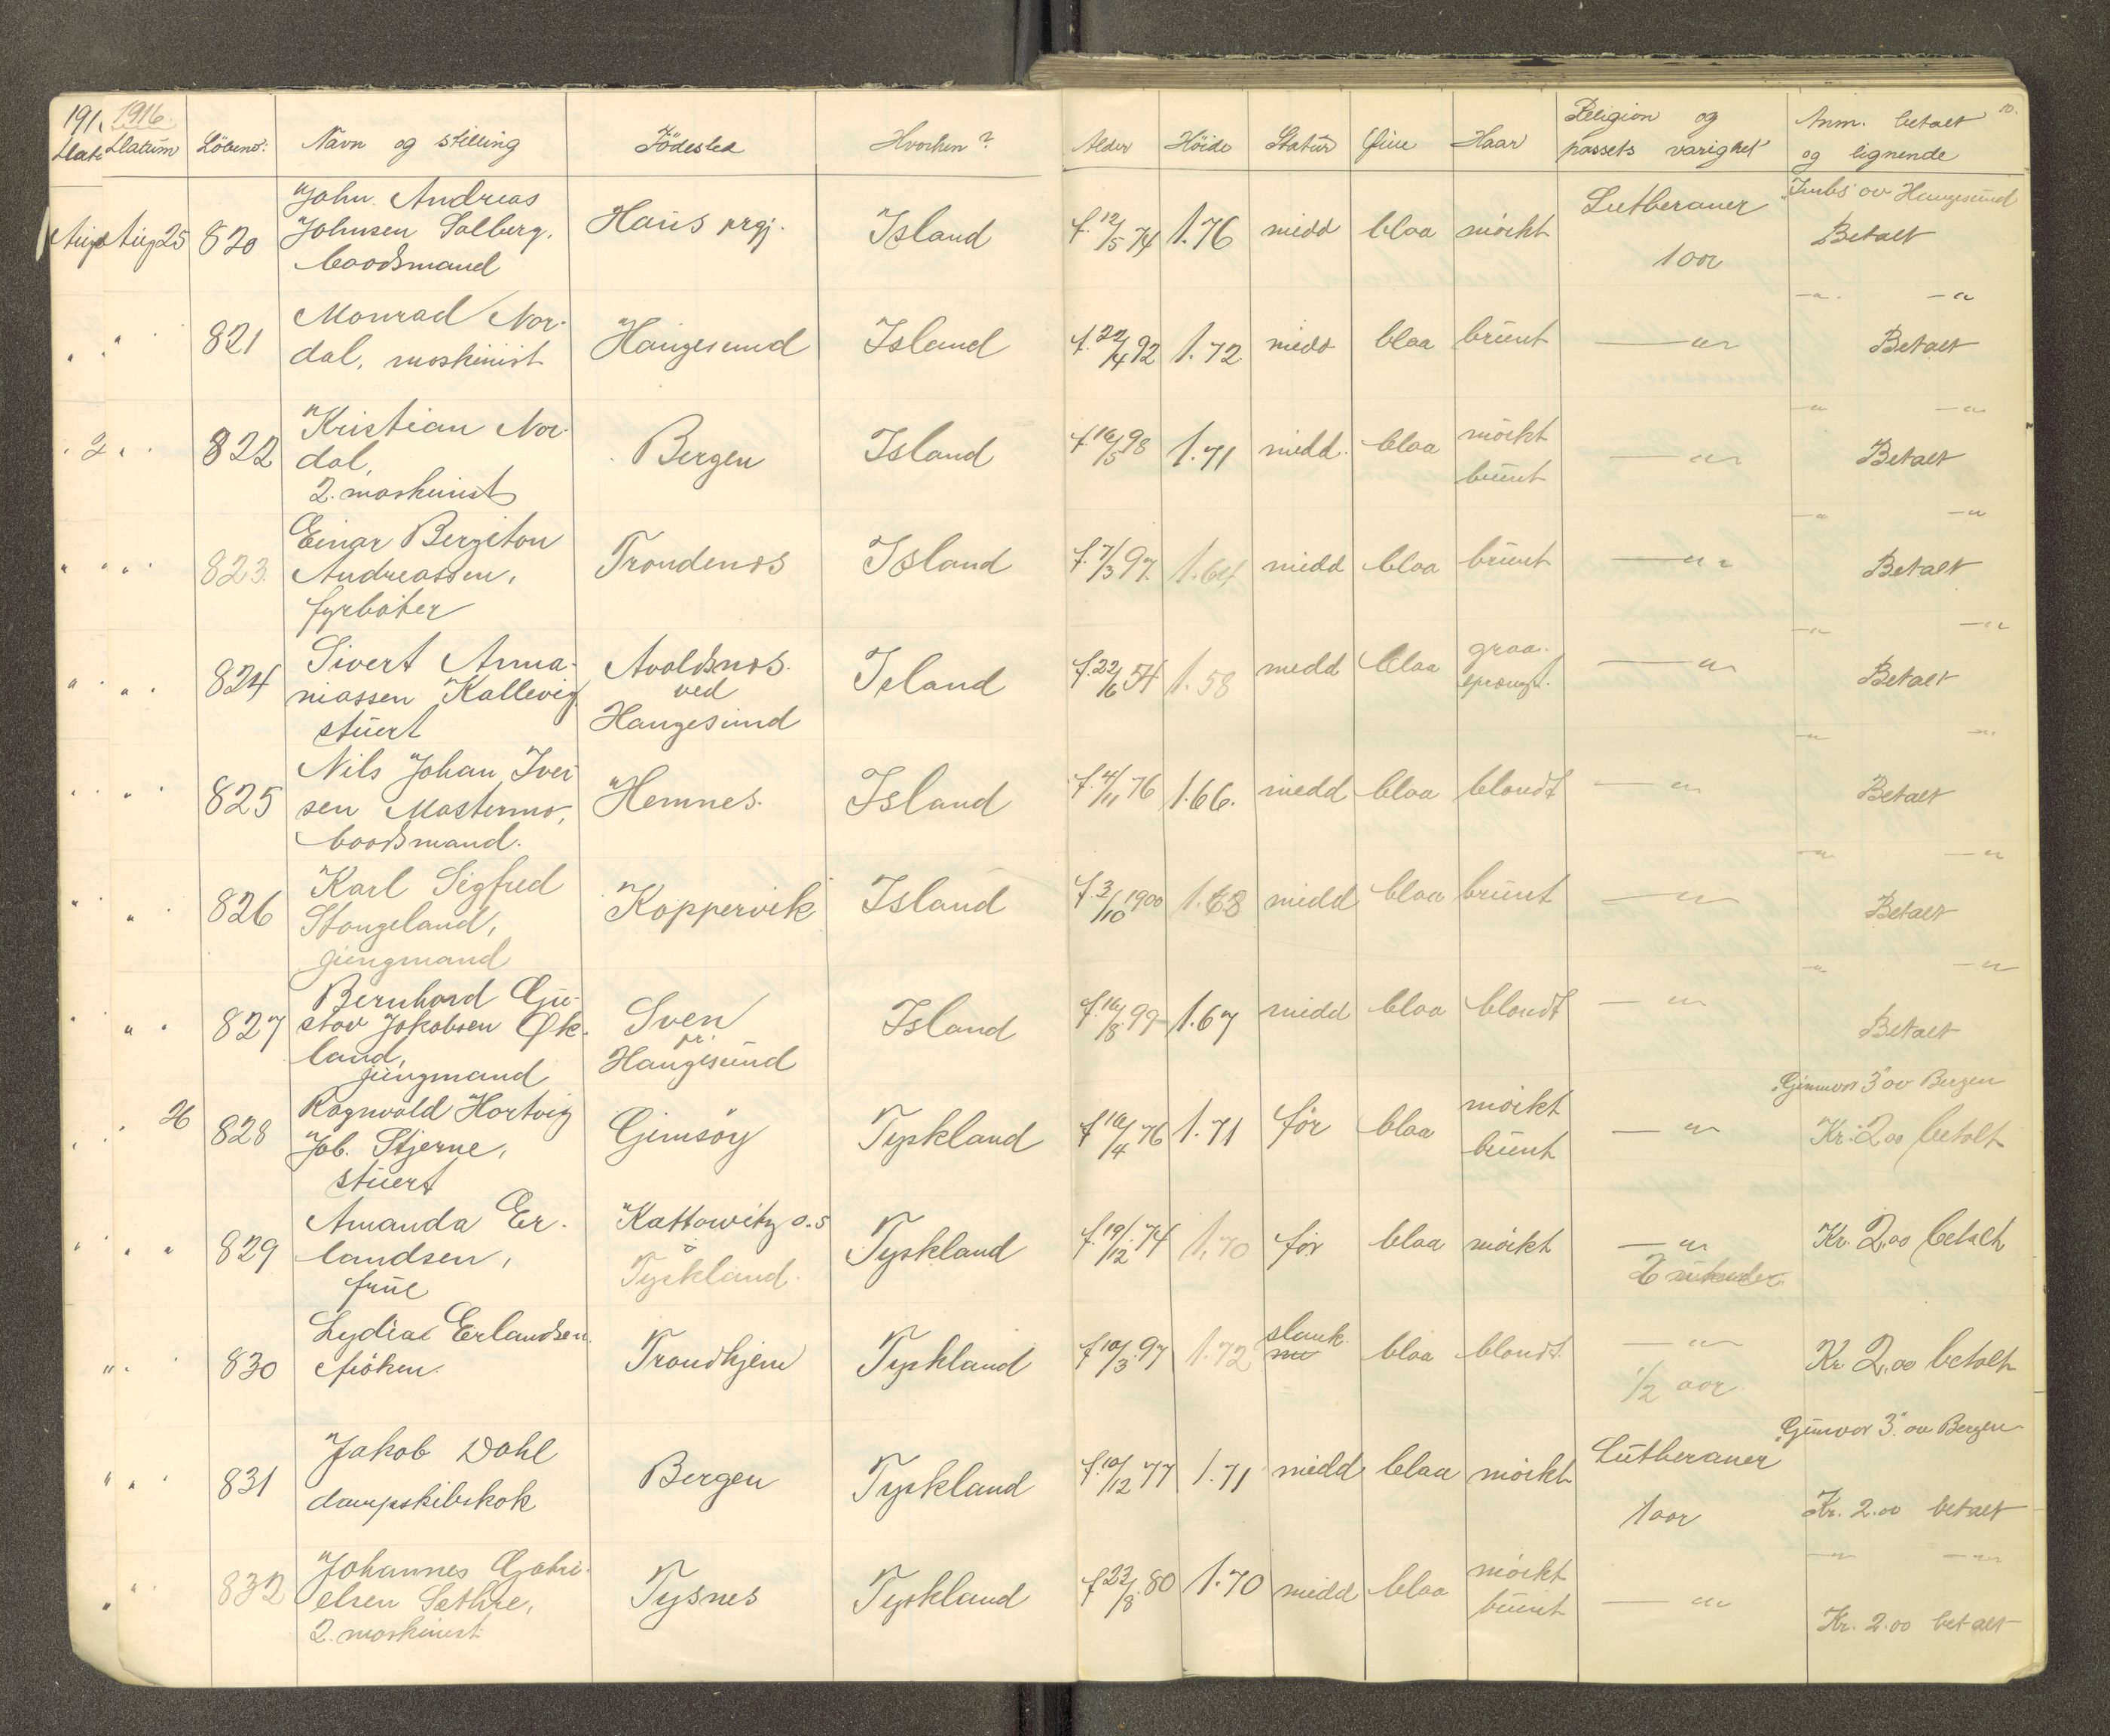 1916.
Datum Löbenr. Navn og stilling Födested Hvorhen? Alder Höide Statur Öine Haar Religion og passets varighet Anm. betalt og lignende
10.
Aug 25 820 John Andreas Johnsen Solberg, baadsmand Haus prgj. Island f. 12/5 74 1.76 midd blaa mörkt Lutheraner 1 aar av Haugesund Betalt
" " 821 Monrad Nordal, maskinist Haugesund Island f. 22/4 92 1.72 midd blaa brunt —"— —"— —"— Betalt
" " 822 Kristian Nordal, 2. maskinist Bergen Island f. 16/5 98 1.71 midd. blaa mörkt brunt —"— —"— —"— Betalt
" " 823 Einar Bergiton Andreassen, fyrböter Trondenes Island f. 7/3 97. 1.64 midd blaa brunt —"— —"— —"— Betalt
" " 824 Sivert Annaniassen Kallevig stuert Avaldsnes ved Haugesund Island f. 22/6 54 1.58 midd blaa graasprængt. —"— —"— —"— Betalt
" " 825 Nils Johan Iversen Mastermo, baadsmand. Hemnes. Island f. 4/11 76 1.66. midd blaa blondt —"— —"— —"— Betalt
" " 826 Karl Sigfred Stangeland, jungmand Koppervik Island f. 3/10 1900 1.68 midd blaa brunt —"— —"— —"— Betalt
" " 827 Bernhard Gustav Jakobsen Økland, jungmand Sven pr. Haugesund Island f. 16/8 99 1.67 midd blaa blondt —"— —"— —"— Betalt
" 26 828 Ragnvald Hartvig Job. Stjerne, stuert Gimsöy Tyskland f 10/4 76 1.71 för blaa mörkt brunt —"— "Gunvor 3" av Bergen Kr. 2.00 betalt
" " 829 Amanda Erlandsen, frue Kattowitz o.s Tyskland Tyskland f. 19/12 74 1.70 för blaa mörkt —"— Kr. 2.00 betalt
" " 830 Lydia Erlandsen fröken. Trondhjem Tyskland f 10/3 97 1.72 slank blaa blondt. —"— 1/2 aar Kr 2.00 betalt
" " 831 Jakob Dahl dampskibskok Bergen Tyskland f. 10/12 77 1.71 midd blaa mörkt Lutheraner 1 aar "Gunvor 3" av Bergen Kr. 2.00 betalt
" " 832 Johannes Gabrielsen Sæthre, 2. maskinist Tysnes Tyskland f 23/8 80 1.70 midd blaa mörkt brunt —"— —"— —"— Kr. 2.00 betalt